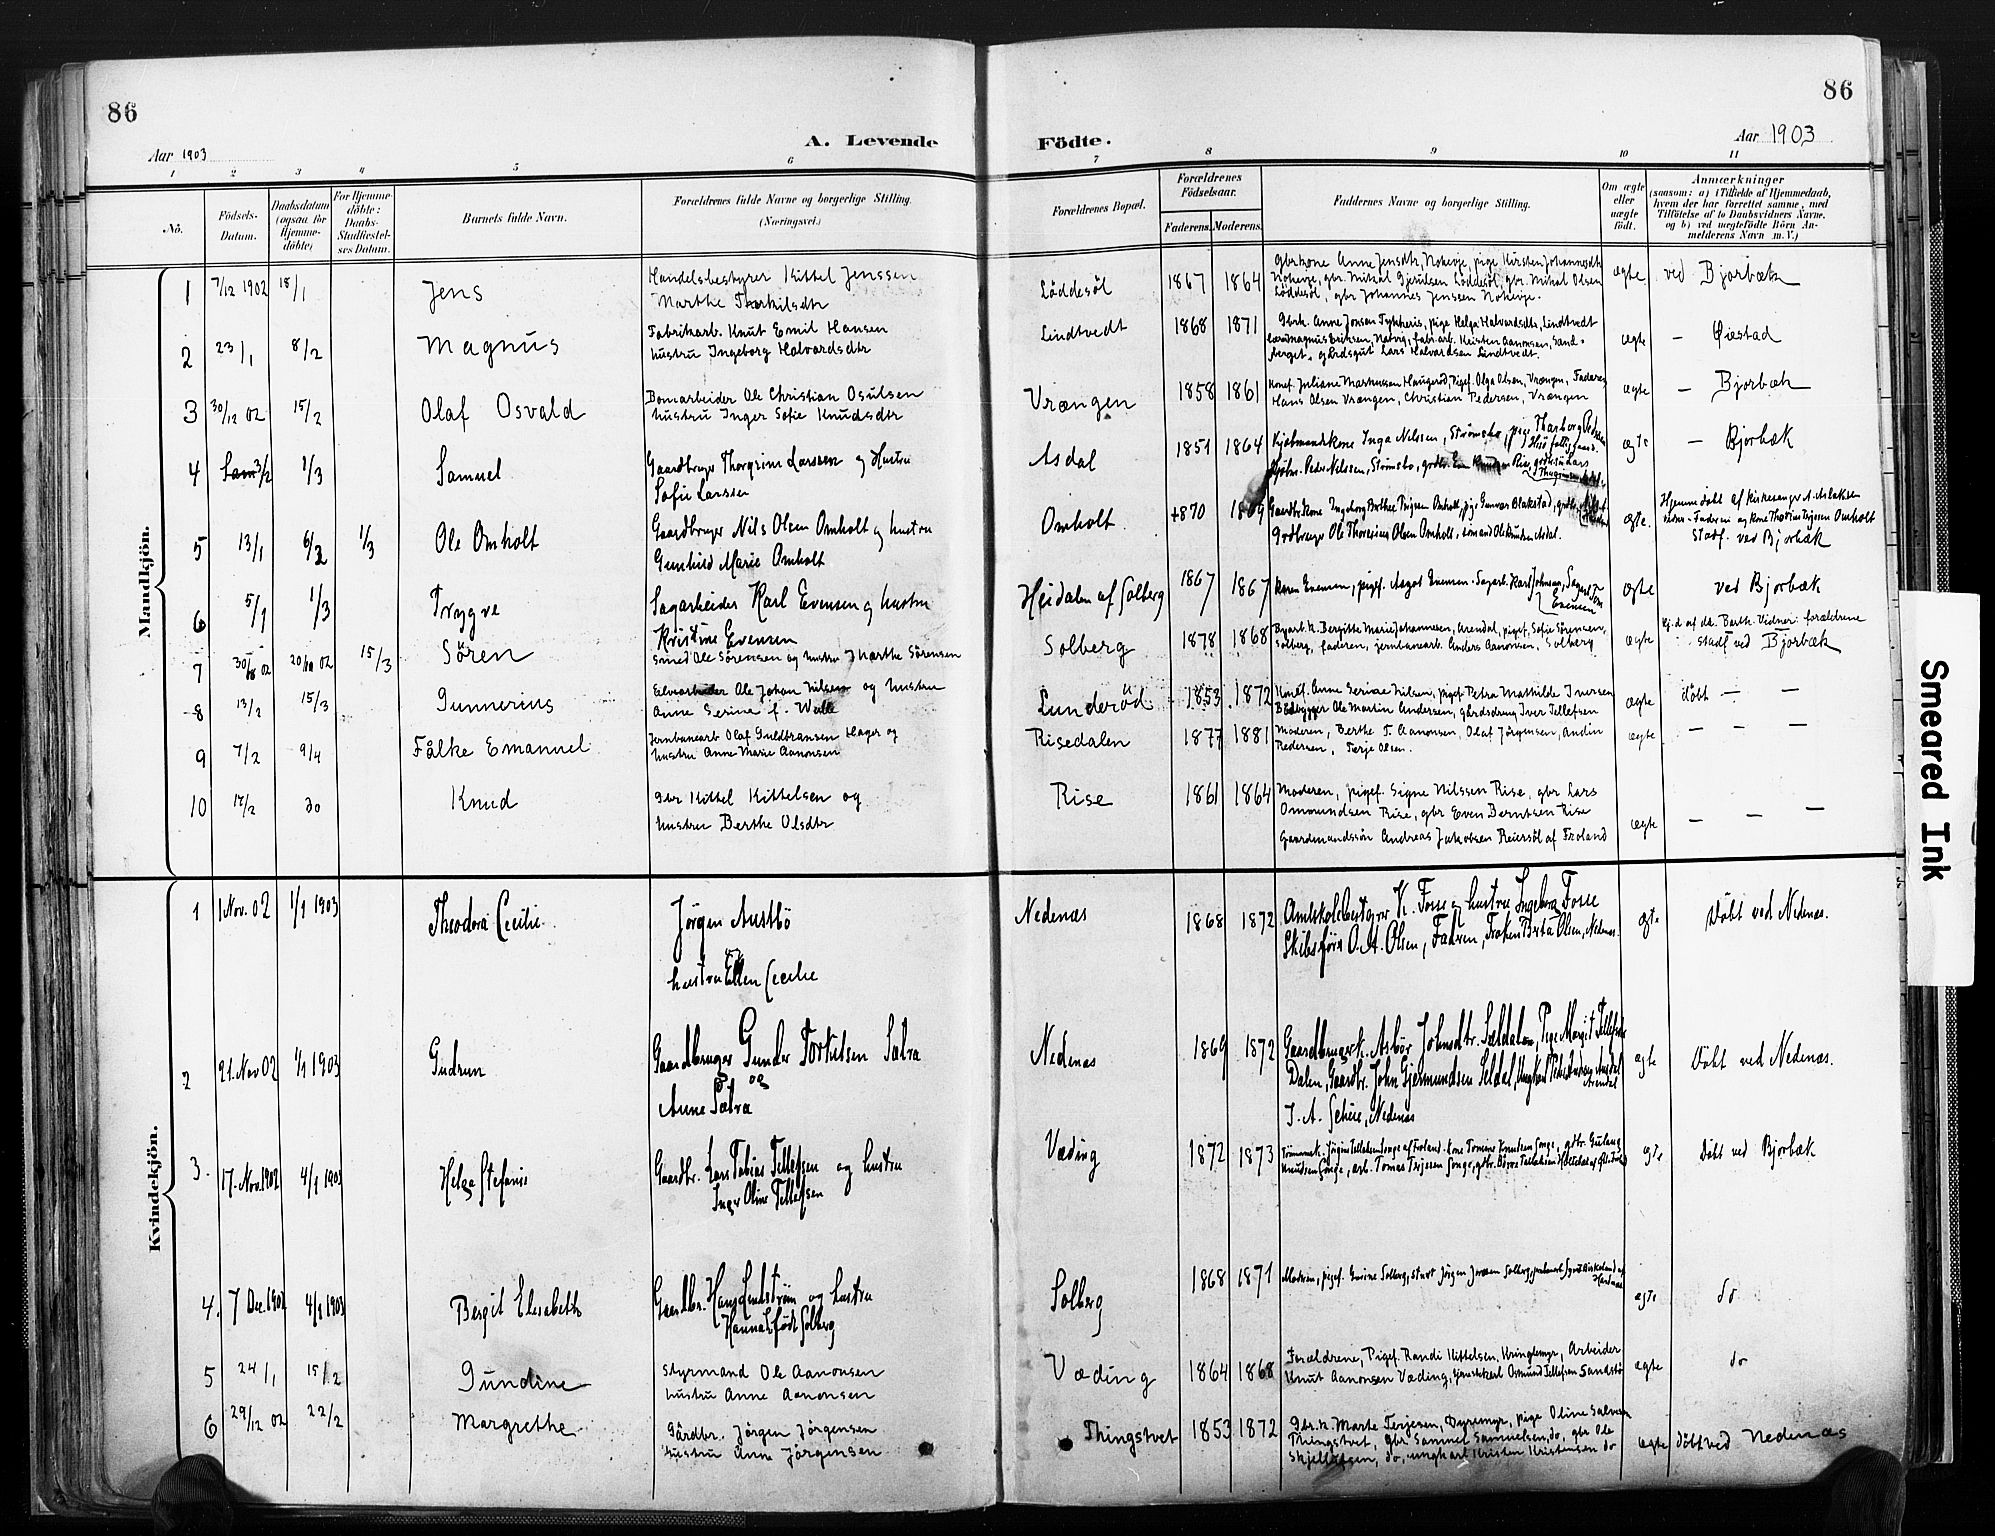 86
86
A. Levende
Födte.
Aar 1903
Aar 1903
1
2
3
4
5
6
7
8
9
10
11
Nö.
Födsels-
Datum.
Daabsdatum
(ogsaa for
Hjemme-
döbte)
For Hjemme-
döbte:
Daabs-
Stadfæstel-
ses Datum.
Barnets fulde Navn.
Forældrenes fulde Navne og borgerlige Stilling.
(Næringsvei.)
Forældrenes Bopæl.
Forældrenes
Födselsaar.
Faderens.
Moderens.
Faddernes Navne og borgerlige Stilling.
Om ægte
eller
uægte
födt.
Anmærkninger
(saasom: a) i Tilfælde af Hjemmedaab,
hvem der har forrettet samme, med
Tilföielse af to Daabsvidners Navne,
og b) ved uægtefödte Börn An-
melderens Navn m. V.)
Mandkjön.
1 7/12 1902 18/1 Jens
Handelsbestyrer Kittel Jenssen
Marthe Thorkilsdtr
Löddesöl 1867 1864
Gbrkone Anne Jensdtr, Nohevje, pige Kirsten Johannesdtr
Nohevje, gbr. Mikal Gjerulsen Löddesöl, gbr. Mikal Olsen
Löddesöl, gbr Johannes Jenssen Nohevje.
ægte ved Bjorbæk
2 23/1 8/2 Magnus
Fabrikarb. Knut Emil Hansen
hustru Ingeborg Halvardsdtr
Lindtvedt 1868 1871
Gbrk. Anne Jonsen, pige Helga Halvardsdtr, Lindtvedt
Magnus Eriksen, Natvig, fabr.arb. Kristen Aanonsen, Sand-
berget, Lars Halvardsen Lindtvedt.
ægte — Öiestad
3 30/12 02 15/2 Olaf Osvald
Bomarbeider Ole Christian Osulsen
hustru Inger Sofie Knudsdtr
Vrængen 1858 1861
Konef. Juliane Markussen Haugerud, Pigef. Olga Olsen, Vrængen, Faderen
Hans Olsen Vrængen, Christian Pedersen, Vrængen
ægte — Bjorbæk
4 3/2 1/3 Samuel
Gaardbruger Thorgrim Larssen og Hustru
Sofie Larssen
Asdal 1851 1864
Kjøbmandskone Inga Nilssen, Strömsbo, pige Tharborg Pedersen
Hisö fattiggaard.
Kjøbm. Peder Nilssen, Strömsbo, Rise, Lars
ægte — Bjorbæk
5 13/1 6/2 1/3 Ole Omholt
Gaardbruger Nils Olsen Omholt og hustru
Gunhild Marie Omholt
Omholt 1870
Gaardbr.kone Ingeborg Birthe Terjesen Omholt, pige Gunvor Blakstad,
Grdbruger Ole Thorsius Olsen Omholt, Ole Knudsen Asdal.
ægte.
Hjemmedøbt af Kirkesanger A. Aslaksen
Faderen og Kone Terjesen Omholt
Stadf. ved Bjorbæk
6 5/1 1/3 Trygve
Sagarbeider Karl Evensen og hustru
Kristine Evensen
Heidalen af Solberg 1867 1867
Karen Evensen, pigef. Aagot Evensen, Sagarb. Karl Johnsen, Sagarb. Tom
Evensen
ægte ved Bjorbæk
7 30/8 02 20/10 02 15/3 Sören
Smed Ole Sörensen og hustru Marthe Sörensen
Solberg 1878 1868
Bergitte Marie Johannesen, Arendal, pigef. Sofie Sörensen,
Solberg, faderen, jernbanearb. Anders Aanonsen, Solberg
ægte
Hj.d. af dk. Berth. Vidner: forældrene
stadf ved Bjorbæk
8 13/2 15/3 Gunnerius
Ole Johan Nilsen og hustru
Anne Serine f. Wille
Lunderöd 1853 1872
Konef. Anne Serine Nilsen, pigef. Petra Mathilde Iversen
Ole Martin Andersen, gårdsdreng Iver Tellefsen
ægte döbt — —
9 7/2 9/4 Fålke Emanuel
Jernbanearb Olaf Guldbransen Hager og
hustru Anne Marie Aanonsen
Risedalen 1877 1881
Moderen, Berthe T. Aanonsen, Olaf Jörgensen, Andin
Pedersen, Terje Olsen.
ægte — — —
10 17/2 do Knud
Gbr Kittel Kittelsen og
hustru Berthe Olsdtr
Rise 1861 1864
Moderen, pigef. Signe Nilssen Rise, gbr Lars
Ommundsen Rise, gbr Even Berntsen Rise
Gaardmandssön Andreas Jakobsen Reiersöl af Froland
ægte — — —
Kvindekjön.
1 1 Nov. 02 1/1 1903 Theodora Cecilie.
Jörgen Austbö
og
hustru Ellen Cecilie
Nedenæs 1868 1872
Amtskolebestyrer K. Fosse og hustru Ingeborg Fosse
Skibsförer O. A. Olsen, Fadren, Fröken Berta Olsen, Nedenæs.
ægte Döbt ved Nedenæs.
2 21. Nov 02 1/1 1903 Gudrun
Gaardbruger Gunder Torkelsen Salra
og
Anne Salra
Nedenæs 1869 1872
Gaardbruger k. Asbör Johnsdtr. Sældalen, Pige Margit Tellefsdtr
Dalen, Gaardbr. John Gjermundsen Seldal, Ungkarl
Arendal
J. A. Scheie, Nedenæs
ægte Döbt ved Nedenæs.
3. 17. Nov. 1902 4/1 1903 Helga Stefanie
Gaardbr. Lars Tobias Tellefsen og hustru
Inger Oline Tellefsen
Væding 1872 1873
Tellefsen Songe af Froland. Knudsen Songe, gdbr. Guttorm
Knudsen Songe, arb. Tomas Terjesen Songe, gdbr.
ægte Döbt ved Bjorbæk
4. 7 Dec. 1902 4/1 1903 Bergit Elisabeth
Gaardbr. Hans Lindtström og hustru
Hanna född Solberg
Solberg 1868 1871
Moderen, pigef. Gurine Solberg, Jörgen Jensen Solberg,
ægte do
5 24/1 15/2 Gundine
Styrmand Ole Aanonsen
hustru Anne Aanonsen
Væding 1864 1868
Forældrene, Pigef. Randi Kittelsen, Kringlemyr, Arbeider
Knut Aanonsen Væding, tjenestekarl Osmund Tellefsen Sandstö
ægte do
6 29/12 02 22/2 Margrethe
Gårdbr. Jörgen Jörgensen
hustru Anne Jörgensen
Thingstvet 1853 1872
Gbr.k. Marte Terjesen, Dyremyr, pige Oline Salvesen
Thingstvet, gbr Samuel Samuelsen, do, gbr Ole
Skjelleksen, do, ungkarl Kristen Kristensen do
ægte döbt ved Nedenæs
Smeared Ink